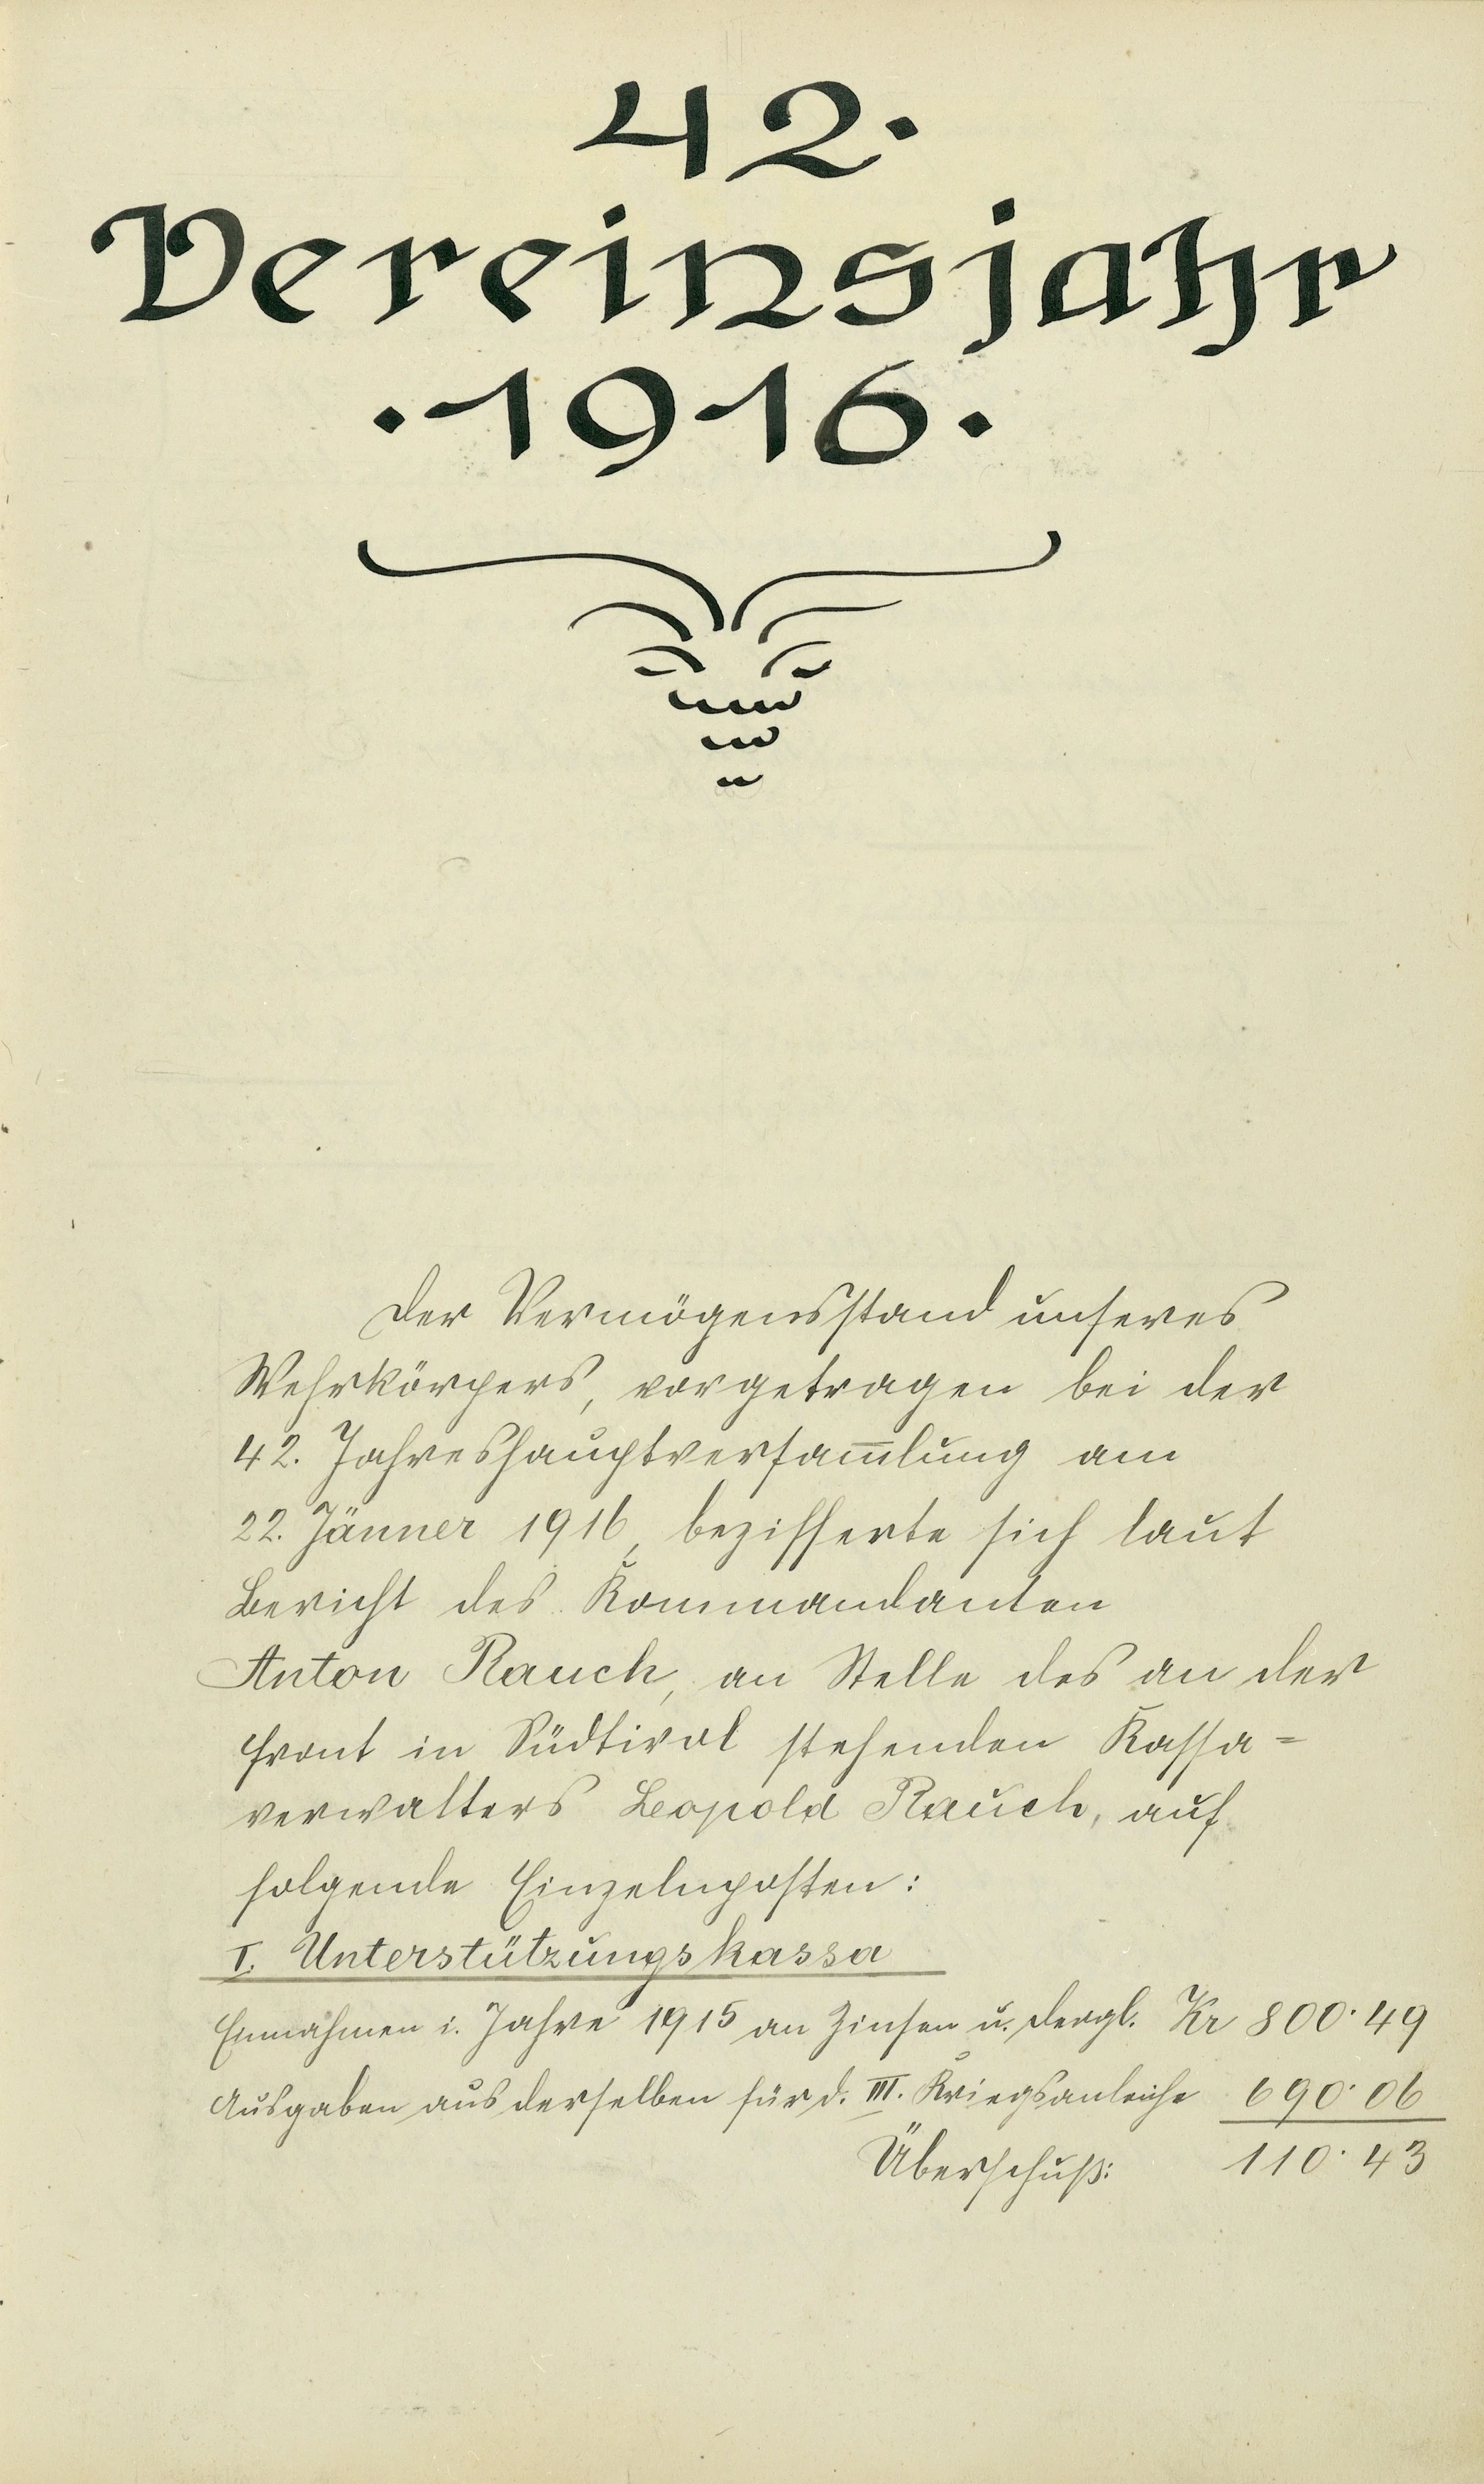 42.
Vereinsjahr
·1916·
Der Vermögensstand unseres
Wehrkörpers, vorgetragen bei der
42. Jahreshauptversam̅lung am
22. Jänner 1916, bezifferte sich laut
Bericht des Kommandanten
Anton Rauch, an Stelle des an der
Front in Südtirol stehenden Kassa=
verwalters Leopold Rauch, auf
folgende Einzelnposten:
I. Unterstützungskassa
Einnahmen i. Jahre 1915 an Zinsen u. dergl. Kr 800·49
Ausgaben aus derselben für d. III. Kriegsanleihe 690·06
Überschuß: 110·43